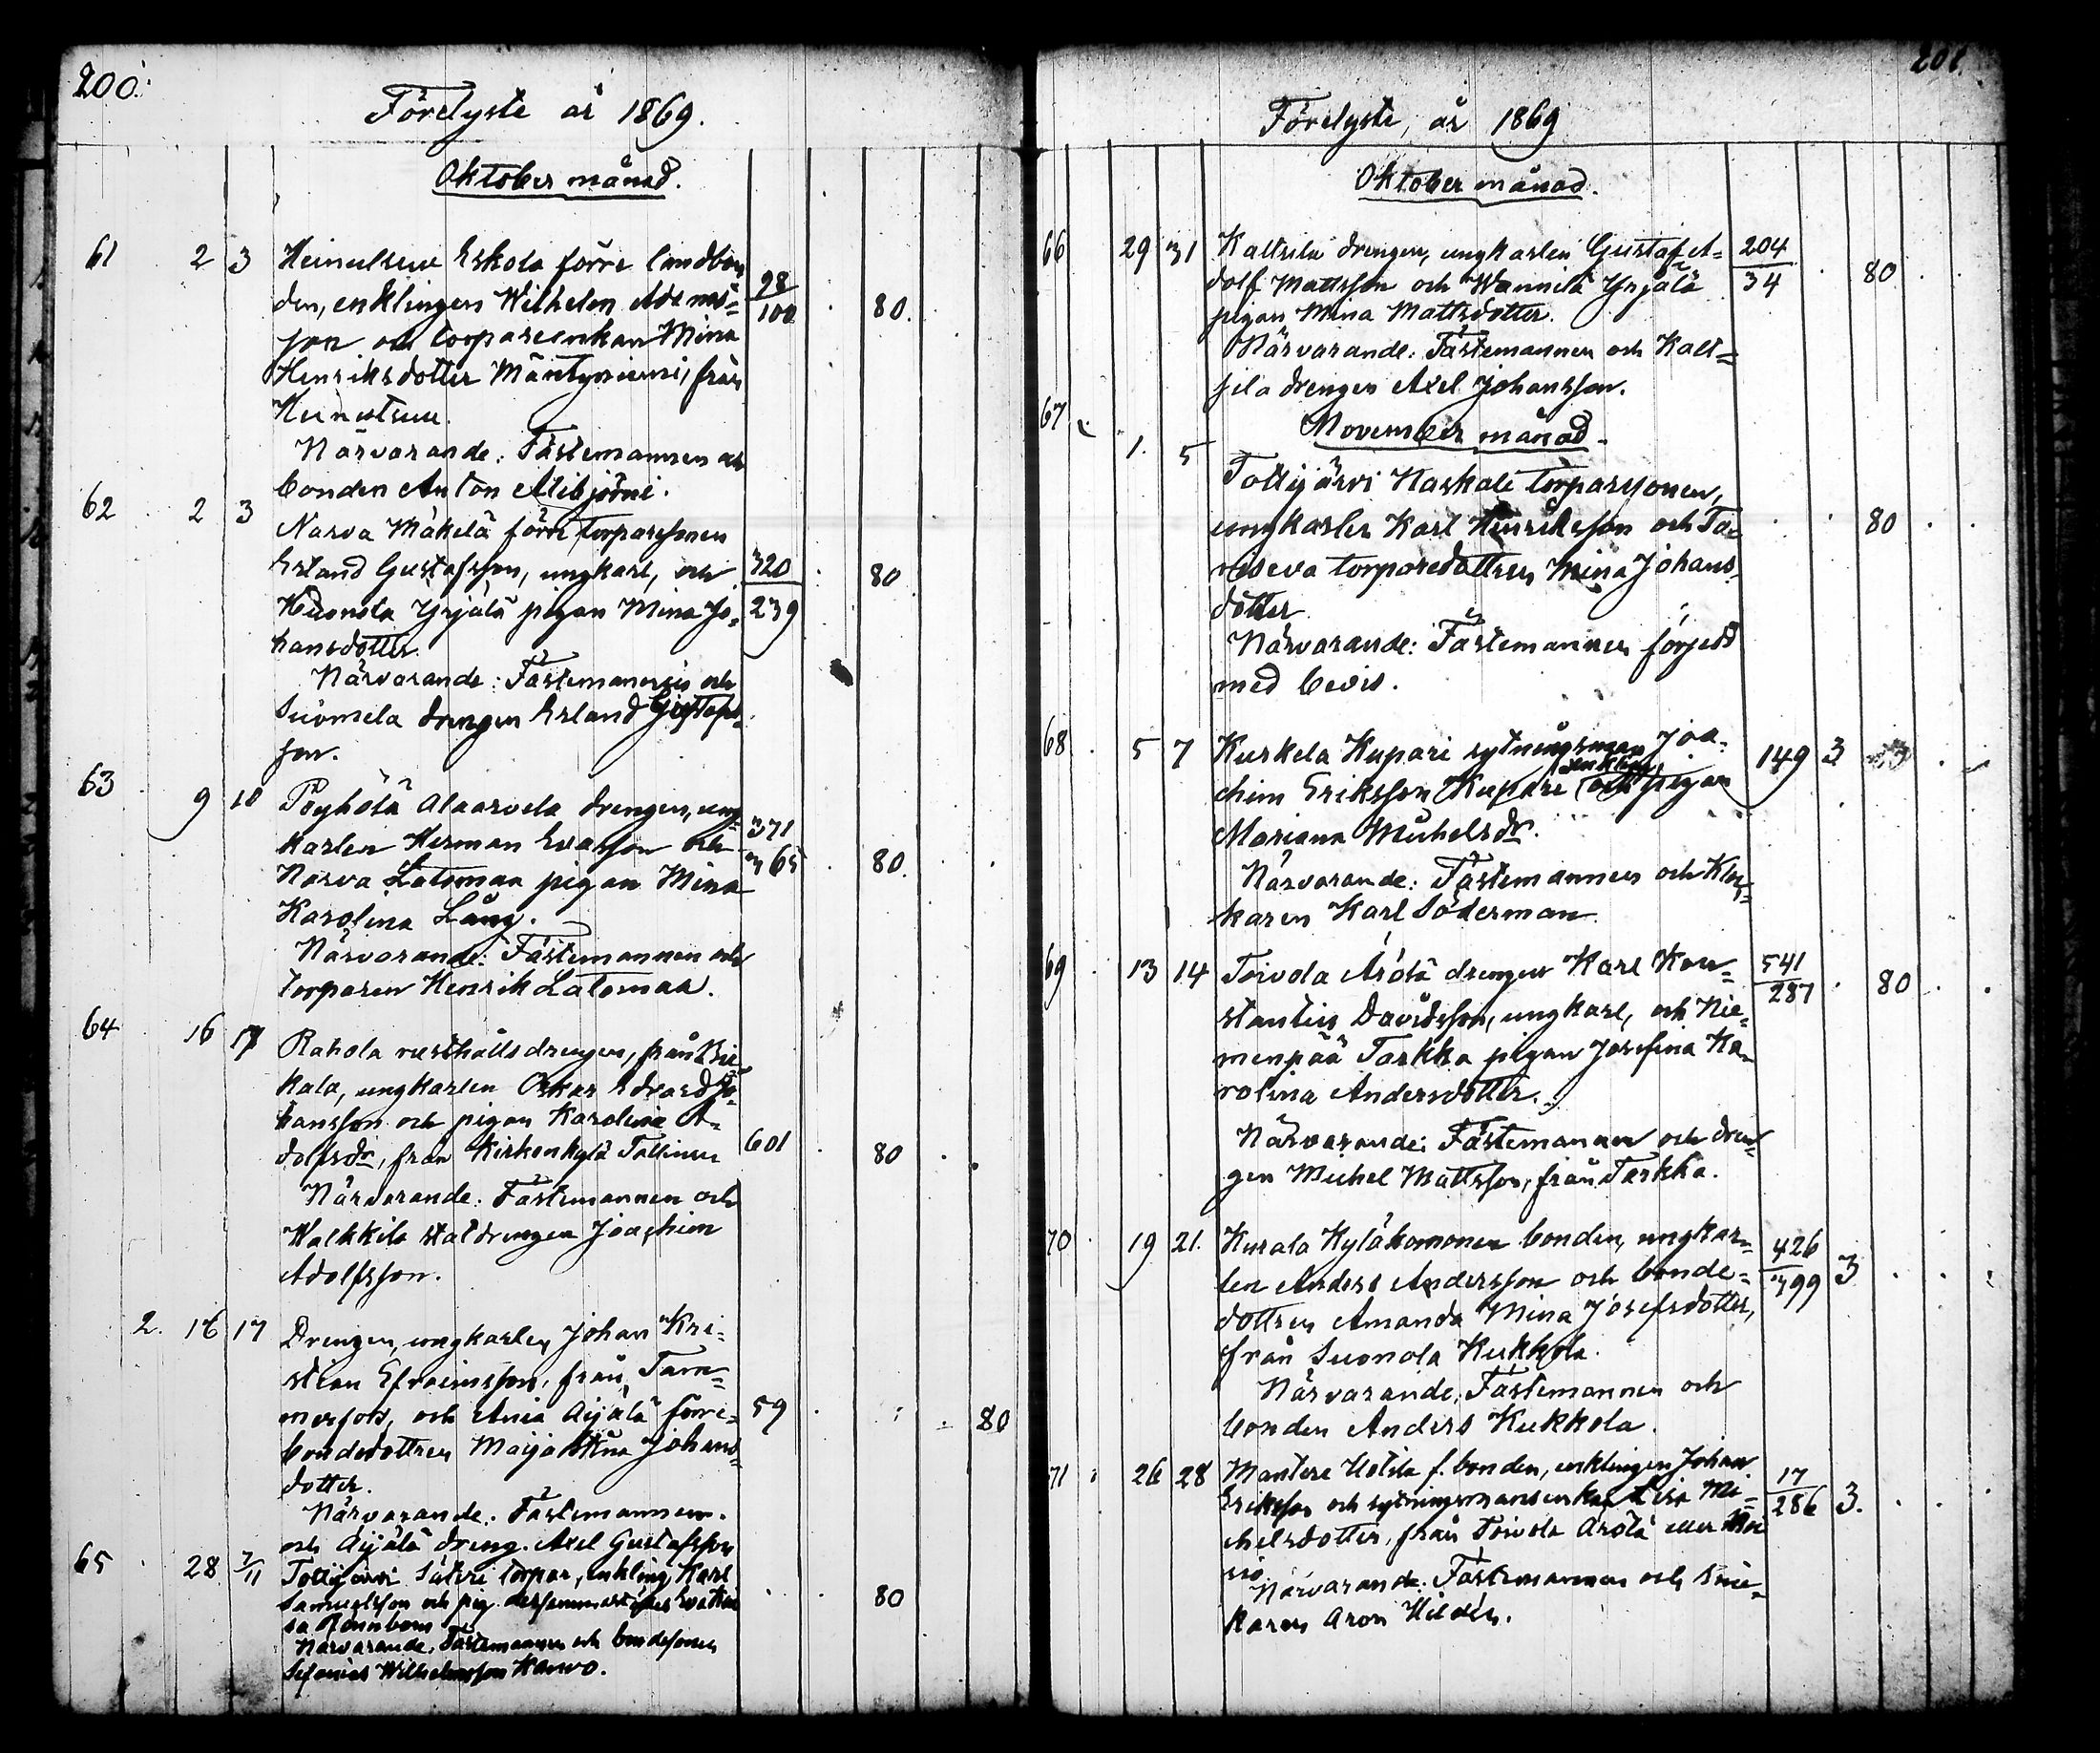 200.
Förelyste år 1869.
Oktober månad.
61 2 3 Heinulseue Eskola förre landbon
den, enklingen Wilhelm Adams= 98
son och torpareenkan Mina 100 80.
Henriksdotter Mäntyniemi, från
Närvarande: Fästemannen och
bonden Anton Alibjörni.
62 2 3 Narva Mäkelä förre torparesonen
Erland Gustafsson, ungkarl, och 320 80
Kuonola Yrjälä pigan Mina Jo= 239
hansdotter.
Närvarande: Fästemannen och
Suomela drengen Erland Gustafs=
son.
63 9 10 Pöyhölä Alaarvela drengen, ung=
karlen Herman Evasson och 371
Narva Latomaa pigan Mina 365 80.
Karolina Lång.
Närvarande: Fästemannen och
torparen Henrik Latomaa.
64 16 17 Rahola rusthållsdrengen, från
kala, ungkarlen Oskar Edvard Jo=
hansson och pigan Karolina A=
dolfsdr, från Kirkonkylä Tallinen 601 80
Närvarande: Fästemannen och
Walkkila staldrengen Joachim
Adolfsson.
2. 16 17 Drengen, ungkarlen Johan Kri=
stian Efraimsson, från Tam=
merfors, och Ania Äijälä förre= 59 80
bondedottren Maija Stina Johans=
dotter.
Närvarande: Fästemannen
och Äijälä dreng. Axel Gustafsson
65 28 7/11 Tottijärvi Säteri torpar, enkling Karl
Samuelsson och pig. dersammastädes Eva Kai
sa Rönnbom 80
Närvarande: Fästemannen och bondesonen
Sefanias Wilhelmsson Harvo.
201.
Förelyste, år 1869
Oktober månad.
66 29 31 Kaltsila drengen, ungkarlen Gustaf A= 204
dolf Mattsson och Wannila Yrjälä 34 80
pigan Mina Mattsdotter.
Närvarande: Fästemannen och Kalt=
sila drengen Axel Johansson.
67
November månad.
1. 5 Tottijärvi Haskale torparsonen,
ungkarlen Karl Henriksson och Ta= 80
veseva torparedottren Mina Johans=
dotter
Närvarande: Fästemannen försedd
med bevis.
68 5 7 Kurkela Kupari sytningsman Joa= 149 3
enkling,
chim Eriksson Kupari och pigan
Mariana Michelsdr.
Närvarande: Fästemannen och Kloc=
karen Karl Söderman
69 13 14 Toivola Arölä drengen Karl Kon= 541
stantin Davidsson, ungkarl, och Nie= 287 80
menpää Tarkka pigan Josefina Ka=
rolina Andersdotter.
Närvarande: Fästemannen och dren=
gen Michel Mattsson, från Tarkka.
70 19 21. Kurala Kylähomonen bonden, ungkar= 426
len Anders Andersson och bonde= 399 3
dottren Amanda Mina Josefsdotter,
från Suonola Kukkola.
Närvarande: Fästemannen och
bonden Anders Kukkola.
71 26 28 Mantere Uotila f. bonden, enklingen Johan 17
Eriksson och sytningsmansenkan Lisa Mi= 286 3.
chelsdotter, från Toivola Arölä eller
Närvarande: Fästemannen och snic=
karen Aron Hildén.